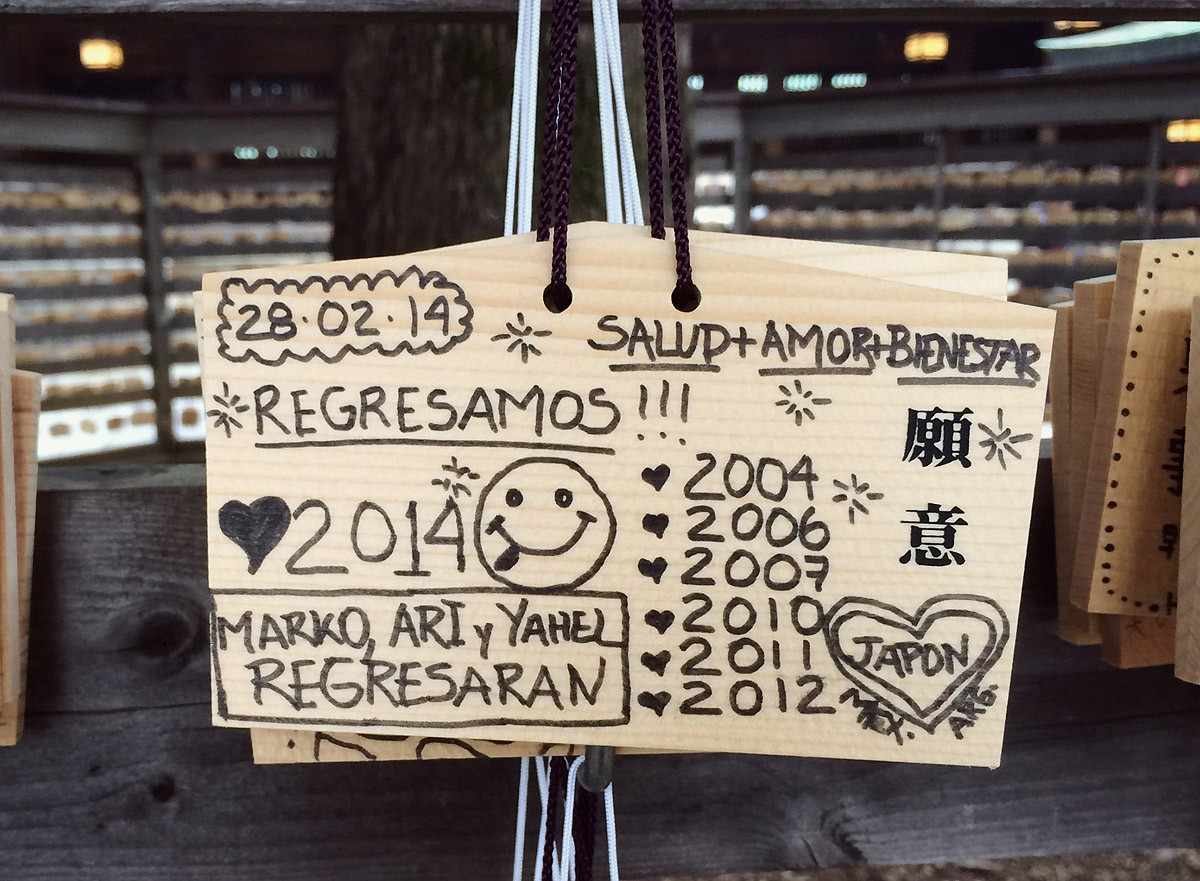 28·02·14
SALUD+AMOR+BIENESTAR
REGRESAMOS !!!
♥2014
MARKO, ARI y YAHEL
REGRESARAN
♥ 2004
♥ 2006
♥ 2007
♥ 2010
♥ 2011
♥ 2012
願
意
JAPON
MEX.
ARG.